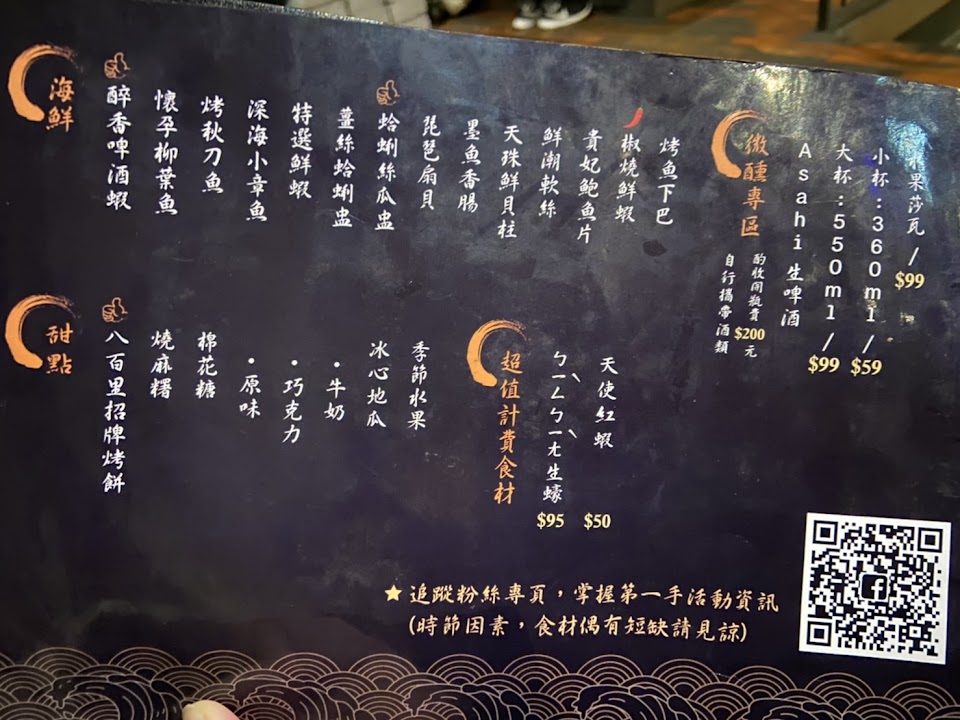 海鮮
醉香啤酒蝦
懷孕柳葉魚
烤秋刀魚
深海小章魚
特選鮮蝦
薑絲蛤蜊盅
蛤蜊絲瓜盅
琵琶扇貝
墨魚香腸
天珠鮮貝柱
鮮潮軟絲
貴妃鮑魚片
椒燒鮮蝦
烤魚下巴
微醺專區
自行攜帶酒類
酌收開瓶費$200元
Asahi 生啤酒
大杯:550ml/$99
小杯:360ml/$59
果莎瓦/$99
甜點
八百里招牌烤餅
燒麻糬
棉花糖
•原味
•巧克力
•牛奶
冰心地瓜
季節水果
超值計費食材
ㄅㄧㄥˋㄅㄧㄤˋ生蠔
$95
天使紅蝦
$50
★追蹤粉絲專頁，掌握第一手活動資訊
(時節因素，食材偶有短缺請見諒)